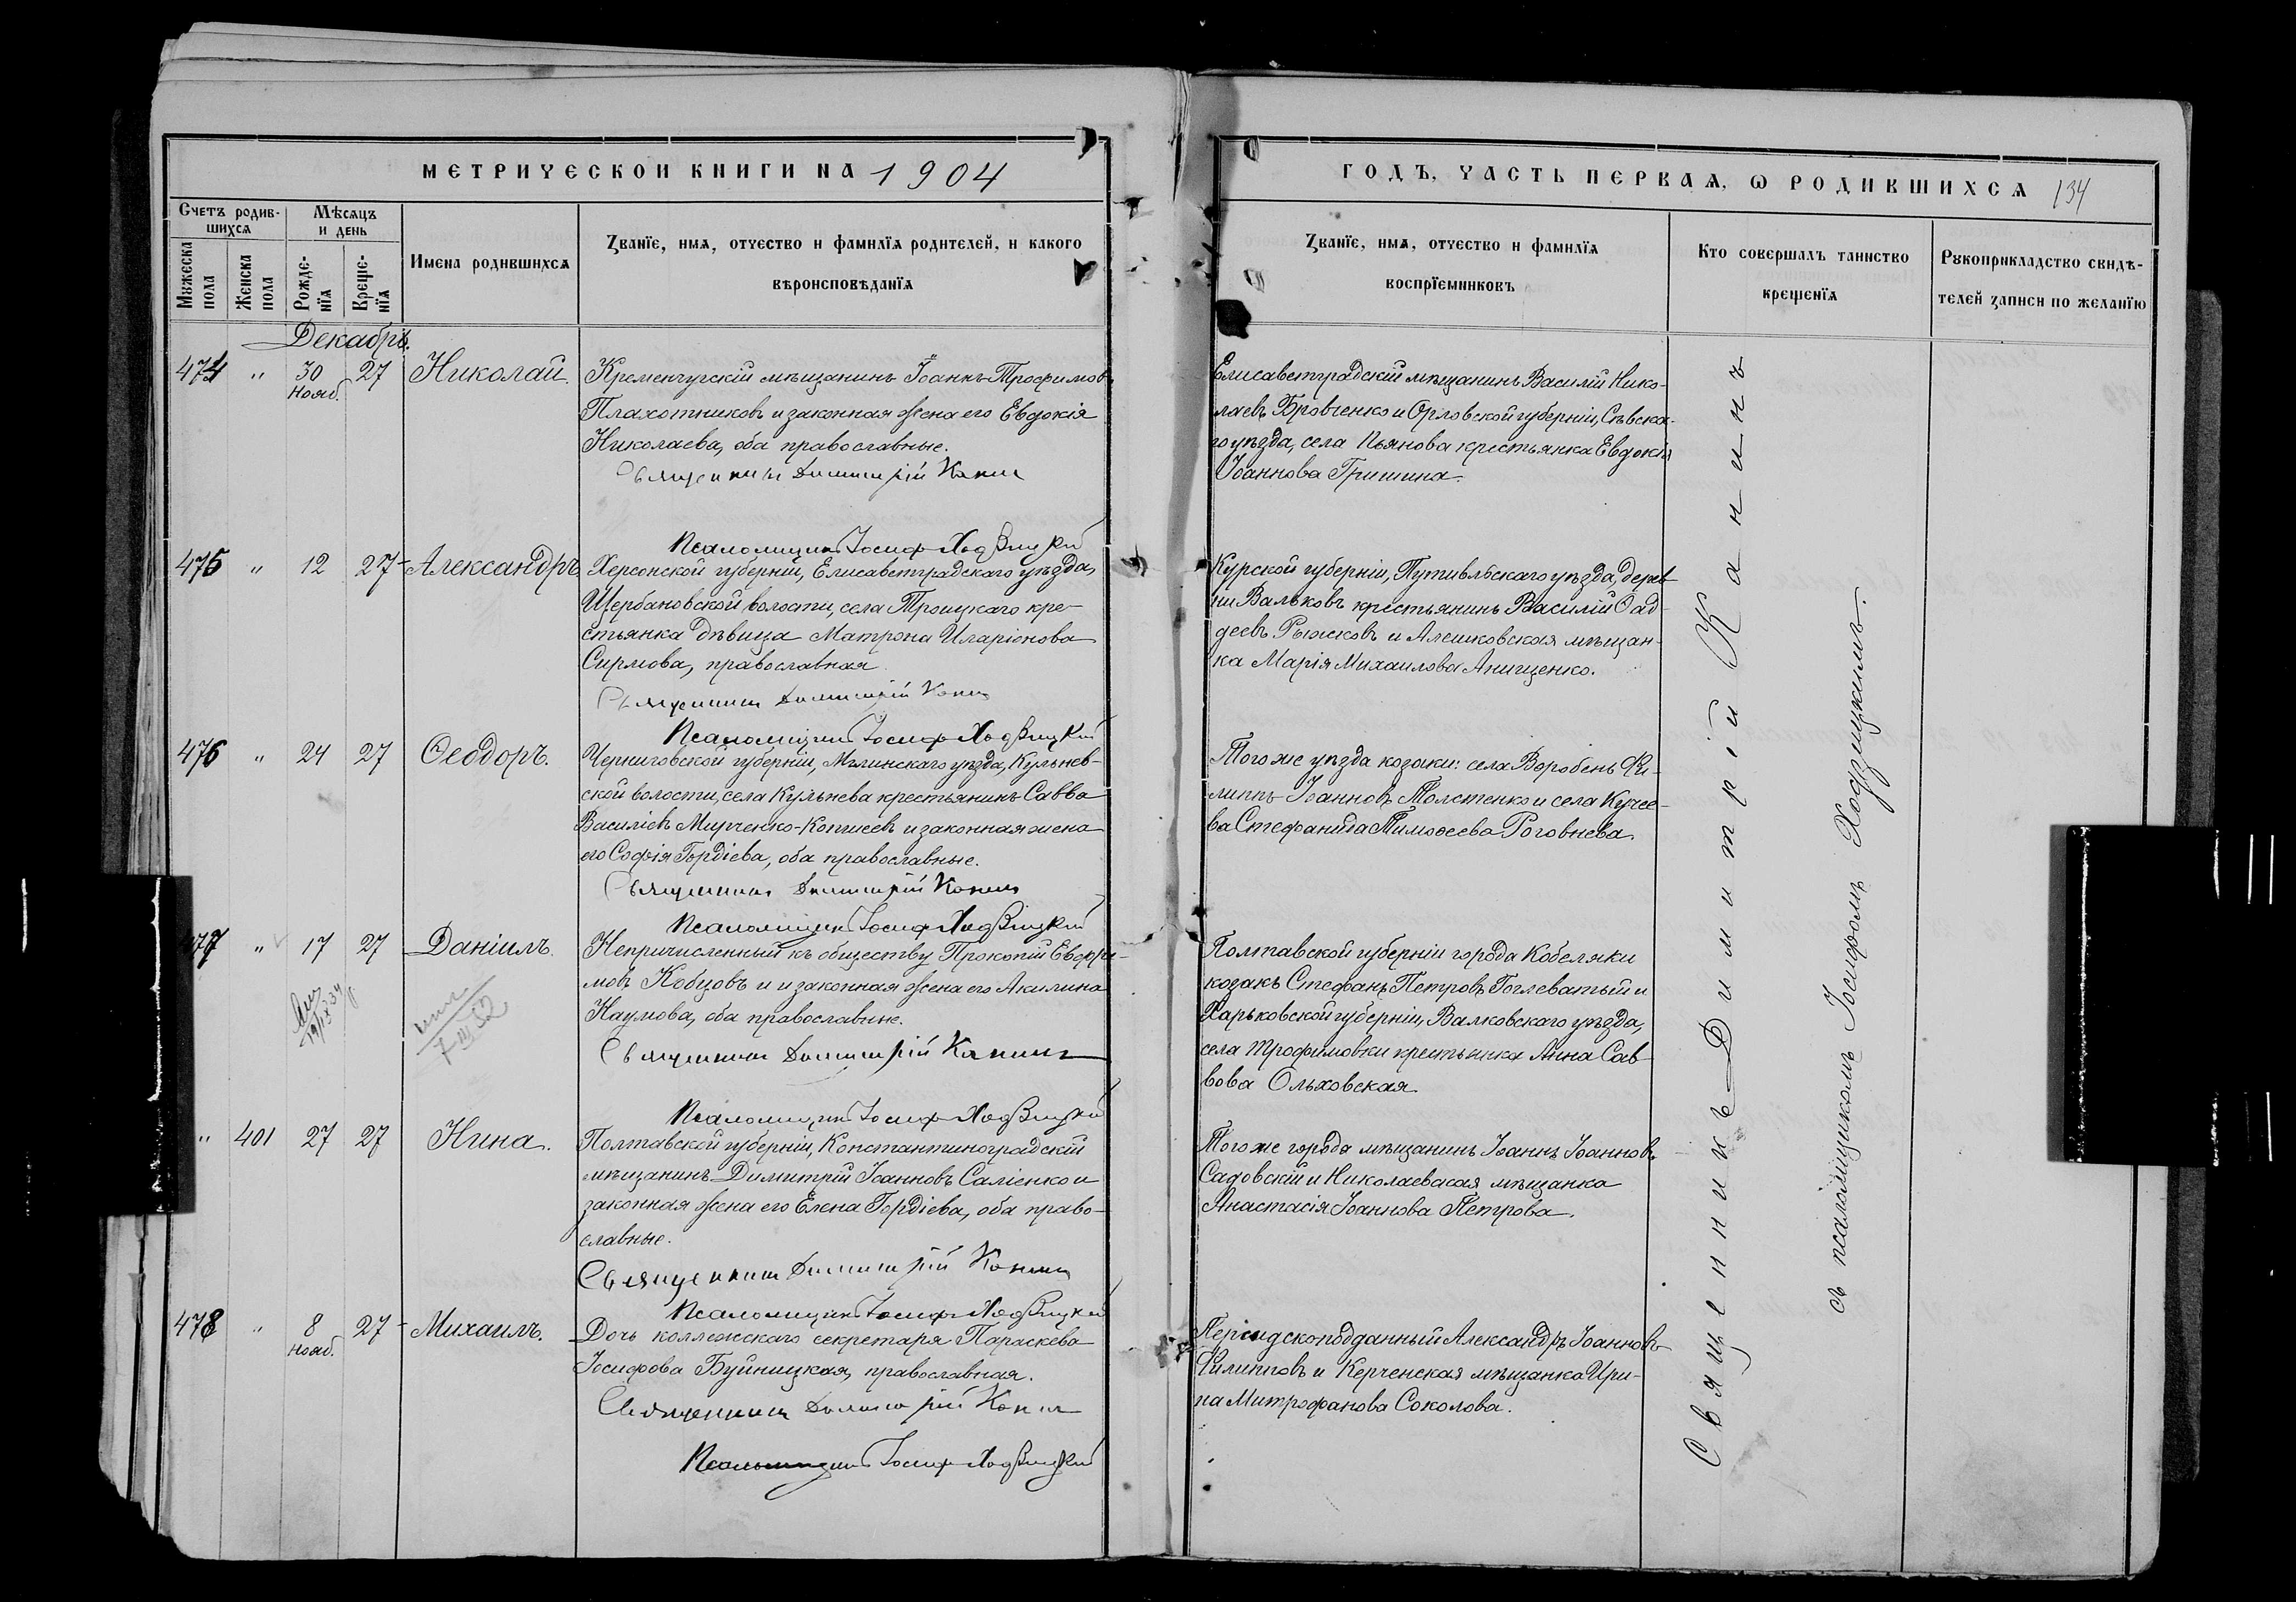 МЕТРИЧЕСКОЙ КНИГИ НА 1904
ГОДЪ, ЧАСТЬ ПЕРВАЯ, Ѡ РОДИВШИХСЯ 134
Счетъ родив-
шихся
Мѣсяцъ
и день
Мужеска
пола
Женска
пола
Рожде-
нїя
Креще-
нїя
Имена родившихся
Званїе, имя, отчество и фамилїя родителей, и какого
вѣроисповѣданїя
Званїе, имя, отчество и фамилїя
воспрїемниковъ
Кто совершалъ таинство
крещенїя
Рукоприкладство свидѣ-
телей записи по желанїю
Декабрь.
474 " 30 27 Николай.
Нояб.
Кременчугскій мѣщанинъ Іоаннъ Трофимовъ
Плахотниковъ и законная жена его Евдокія
Николаева, оба православные.
Священникъ Димитрій Канинъ
Псаломщикъ Іосифъ Ходзицкій
Елисаветградскій мѣщанинъ Василій Нико-
лаевъ Бровченко и Орловской губерніи, Сѣвска-
го уѣзда, села Пьянова крестьянка Евдокія
Іоаннова Гришина.
475 " 12 27 Александръ
Херсонской губерніи, Елисаветградскаго уѣзда,
Щербановской волости, села Троицкаго кре-
стьянка дѣвица Матрона Иларіонова
Сирмова, православная
Священникъ Димитрій Канинъ
Псаломщикъ Іосифъ Ходзицкій
Курской губерніи, Путивльскаго уѣзда, дерев-
ни Вальковъ крестьянинъ Василій Ѳад-
деевъ Рыжковъ и Алешковская мѣщан-
ка Марія Михаилова Анищенко.
476 " 24 27 Ѳеодоръ.
Черниговской губерніи, Мглинскаго уѣзда, Кульнев-
ской волости, села Кульнева крестьянинъ Савва
Василіевъ Мирченко-Копчеевъ и законная жена
его Софія Гордіева, оба православные.
Священникъ Димитрій Канинъ
Псаломщикъ Іосифъ Ходзицкій
Того же уѣзда козаки: села Воробень Фи-
липпъ Іоанновъ Толстенко и села Кучее-
ва Стефанида Тимоѳеева Роговнева.
477 " 17 27 Даніилъ.
Непричисленный къ обществу Прокопій Евфи-
мовъ Кобцовъ и и законная жена его Акилина
Наумова, оба православные.
Священникъ Димитрій Канинъ
Псаломщикъ Іосифъ Ходзицкій
7-III 52
Полтавской губерніи города Кобеляки
козакъ Стефанъ Петровъ Гоглеватый и
Харьковской губерніи, Валковскаго уѣзда,
села Трофимовки крестьянка Анна Сав-
вова Ольховская
" 401 27 27 Нина.
Полтавской губерніи, Константиноградскій
мѣщанинъ Димитрій Іоанновъ Саліенко и
законная жена его Елена Гордіева, оба право-
славные.
Священникъ Димитрій Канинъ
Псаломщикъ Іосифъ Ходзицкій
Того же города мѣщанинъ Іоаннъ Іоанновъ
Садовскій и Николаевская мѣщанка
Анастасія Іоаннова Петрова.
478 " 8 27 Михаилъ.
Нояб.
Дочь коллежскаго секретаря Параскева
Іосифова Буйницкая, православная.
Священникъ Димитрій Канинъ
Псаломщикъ Іосифъ Ходзицкій
Персидскоподданный Александръ Іоанновъ
Филипповъ и Керченская мѣщанка Ири-
на Митрофанова Соколова.
Священникъ Димитрій Канинъ
съ псаломщикомъ Іосифомъ Ходзицкимъ.